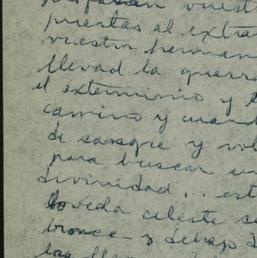 vuest
puertas al extra
vuestro herman
llevad la guerra
el exterminio y l
camino y
de sangre y vol
para buscar un
divinidad... est
boveda celeste se
bronce y debajo
las